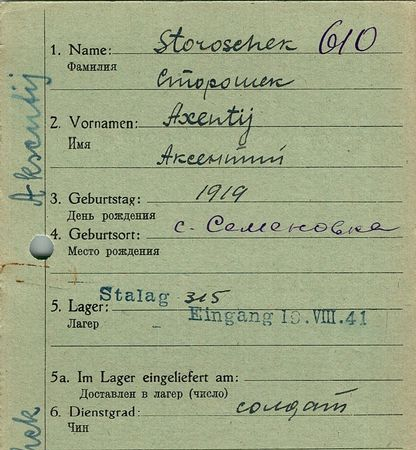 1. Name: Storoschek 610
Фамилия Сторошек
2. Vornamen: Axentij
Имя Аксентий
3. Geburtstag: 1919
День рождения
4. Geburtsort: с. Семеновка
Место рождения
5. Lager: Stalag 315
Лагер Eingang 19. VIII. 41
5a. Im Lager eingeliefert am:
Доставлен в лагер (число)
6. Dienstgrad: солдат
Чин
Aksentij